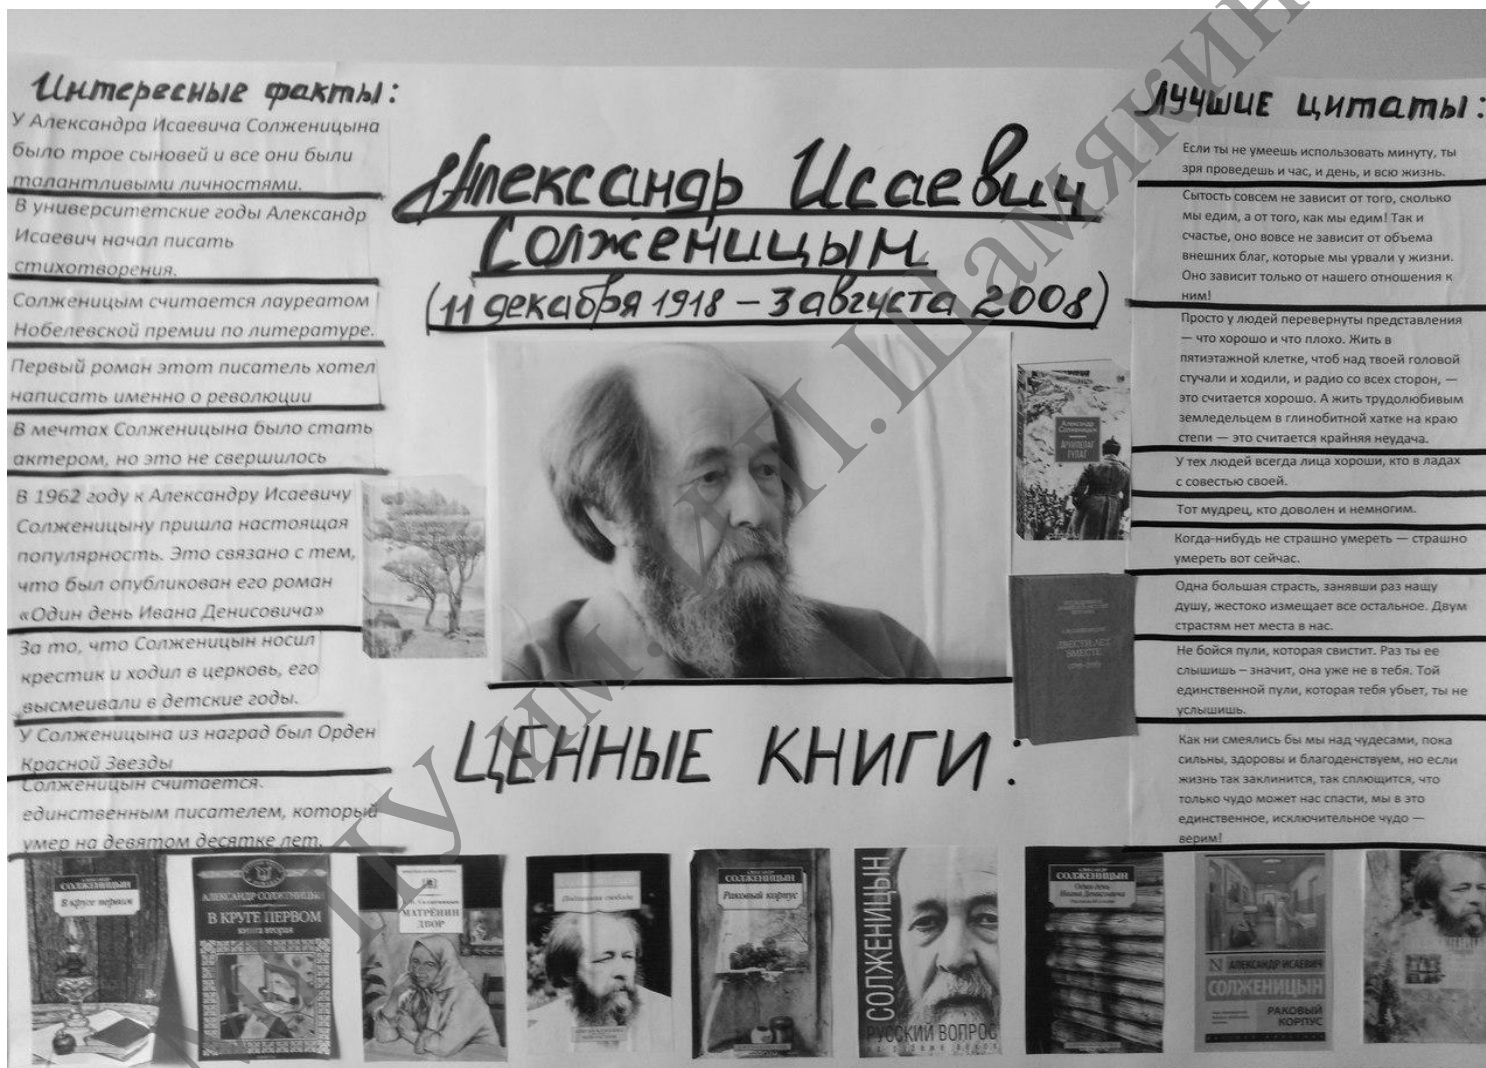 Интересные факты:
У Александра Исаевича Солженицына
было трое сыновей и все они были
талантливыми личностями.
В университетские годы Александр
Исаевич начал писать
стихотворения.
Солженицым считается лауреатом
Нобелевской премии по литературе.
Первый роман этот писатель хотел
написать именно о революции
В мечтах Солженицына было стать
актером, но это не свершилось
В 1962 году к Александру Исаевичу
Солженицыну пришла настоящая
популярность. Это связано с тем,
что был опубликован его роман
«Один день Ивана Денисовича»
За то, что Солженицын носил
крестик и ходил в церковь, его
высмеивали в детские годы.
У Солженицына из наград был Орден
Красной Звезды
Солженицын считается.
единственным писателем, который
умер на девятом десятке лет.
Александр Исаевич
Солженицым
(11 декабря 1918 – 3 августа 2008)
Александр
Солженицын
АРХИПЕЛАГ
ГУЛАГ
ДВЕСТИ ЛЕТ
ВМЕСТЕ
ЦЕННЫЕ КНИГИ:
ЛУЧШИЕ ЦИТАТЫ:
Если ты не умеешь использовать минуту, ты
зря проведешь и час, и день, и всю жизнь.
Сытость совсем не зависит от того, сколько
мы едим, а от того, как мы едим! Так и
счастье, оно вовсе не зависит от объема
внешних благ, которые мы урвали у жизни.
Оно зависит только от нашего отношения к
ним!
Просто у людей перевернуты представления
— что хорошо и что плохо. Жить в
пятиэтажной клетке, чтоб над твоей головой
стучали и ходили, и радио со всех сторон, —
это считается хорошо. А жить трудолюбивым
земледельцем в глинобитной хатке на краю
степи — это считается крайняя неудача.
У тех людей всегда лица хороши, кто в ладах
с совестью своей.
Тот мудрец, кто доволен и немногим.
Когда-нибудь не страшно умереть — страшно
умереть вот сейчас.
Одна большая страсть, занявши раз нащу
душу, жестоко измещает все остальное. Двум
страстям нет места в нас.
Не бойся пули, которая свистит. Раз ты ее
слышишь – значит, она уже не в тебя. Той
единственной пули, которая тебя убьет, ты не
услышишь.
Как ни смеялись бы мы над чудесами, пока
сильны, здоровы и благоденствуем, но если
жизнь так заклинится, так сплющится, что
только чудо может нас спасти, мы в это
единственное, исключительное чудо —
верим!
СОЛЖЕНИЦЫН
В круге первом
АЛЕКСАНДР СОЛЖЕНИЦЫН
В КРУГЕ ПЕРВОМ
книга вторая
МАТРЁНИН
ДВОР
СОЛЖЕНИЦЫН
Раковый корпус
СОЛЖЕНИЦЫН
РУССКИЙ ВОПРОС
СОЛЖЕНИЦЫН
Один день
Ивана Денисовича
АЛЕКСАНДР ИСАЕВИЧ
СОЛЖЕНИЦЫН
РАКОВЫЙ
КОРПУС
ПУ им. И.П. Шамякин